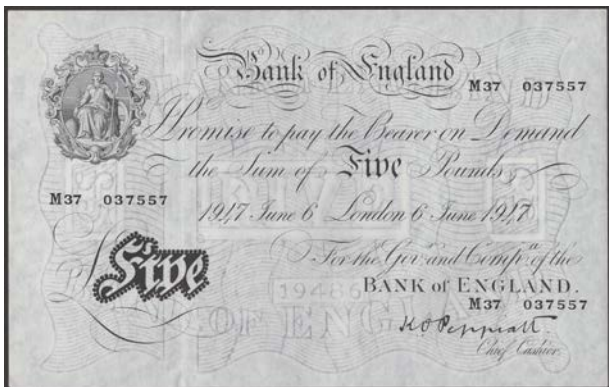 Bank of England
M37 037557
I Promise to pay the Bearer on Demand
the Sum of Five Pounds
M37 037557
1947 June 6 London 6 June 1947
For the Govr. and Compa. of the
BANK of ENGLAND.
M37 037557
Five
K O Peppiatt.
Chief Cashier.